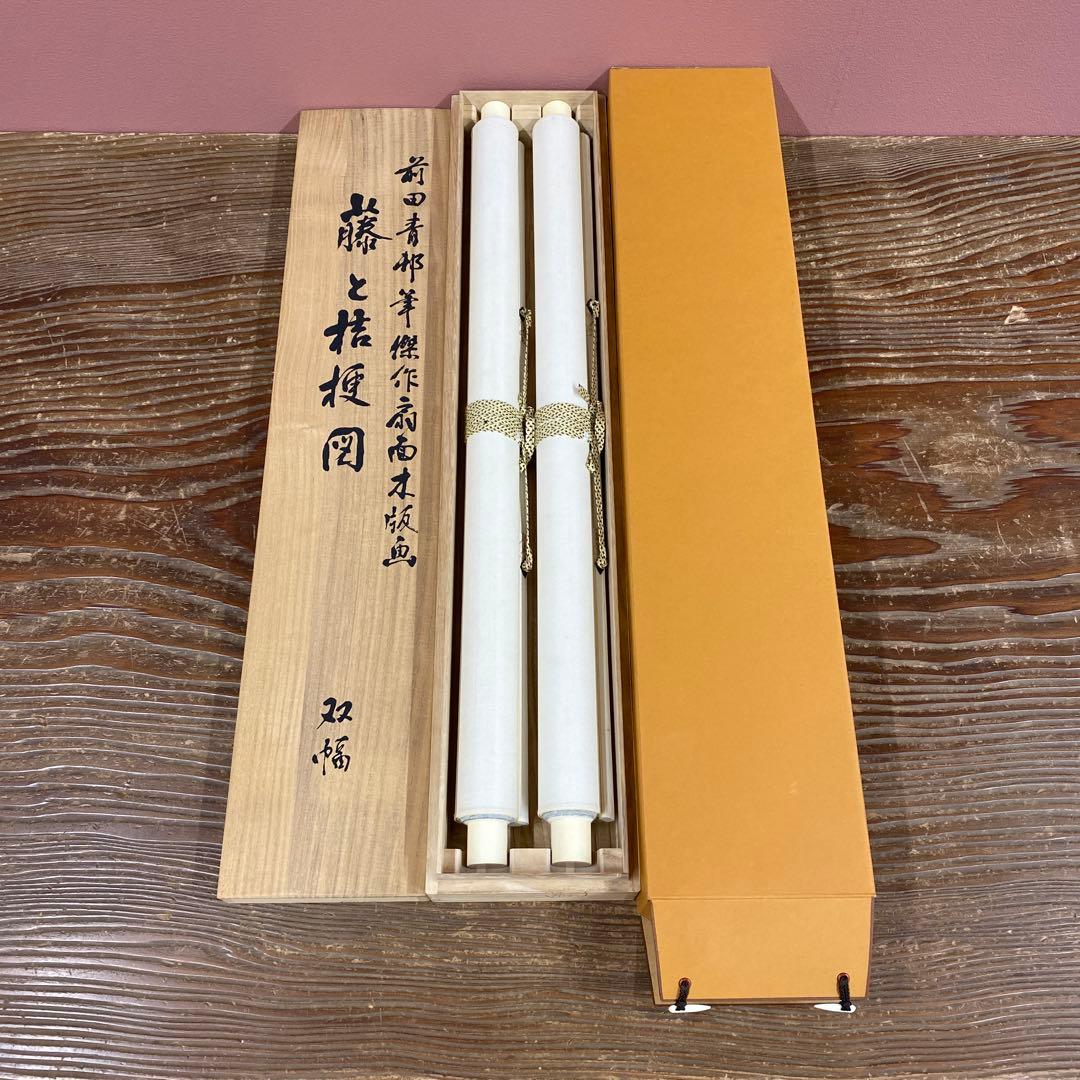 前田青邨筆傑作扇面木版画
藤と桔梗図
双幅